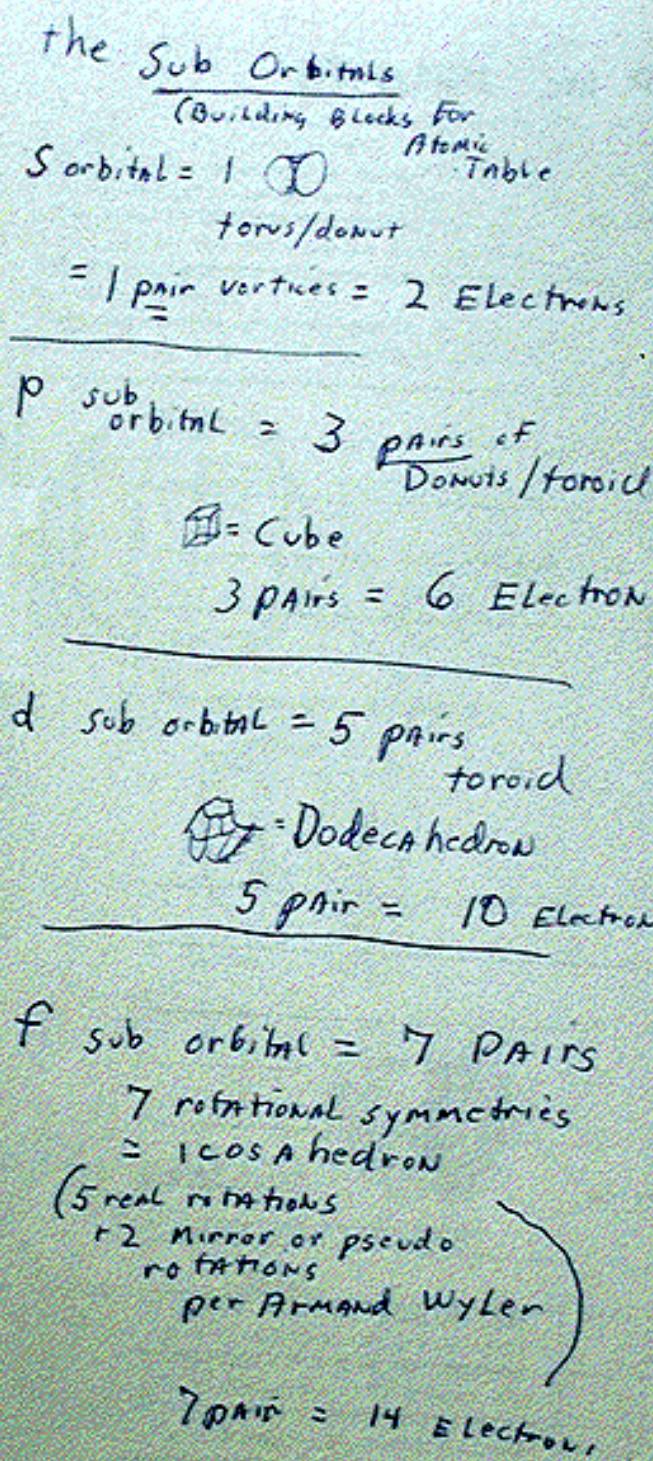 the Sub Orbitals
(Building Blocks For
Atomic
Table
S orbital = 1
torus/donut
= 1 pair vortices = 2 Electrons
p sub
orbital = 3 pairs of
Donuts/toroid
= Cube
3 pAirs = 6 Electron
d sub orbital = 5 pAirs
toroid
= DodecAhedron
5 pAir = 10 Electron
f sub orbital = 7 PAirs
7 rotational symmetries
= icosAhedron
(5 real rotAtions
+2 Mirror or pseudo
rotAtions
per ArmAnd Wyler
)
7 pAir = 14 Electrons